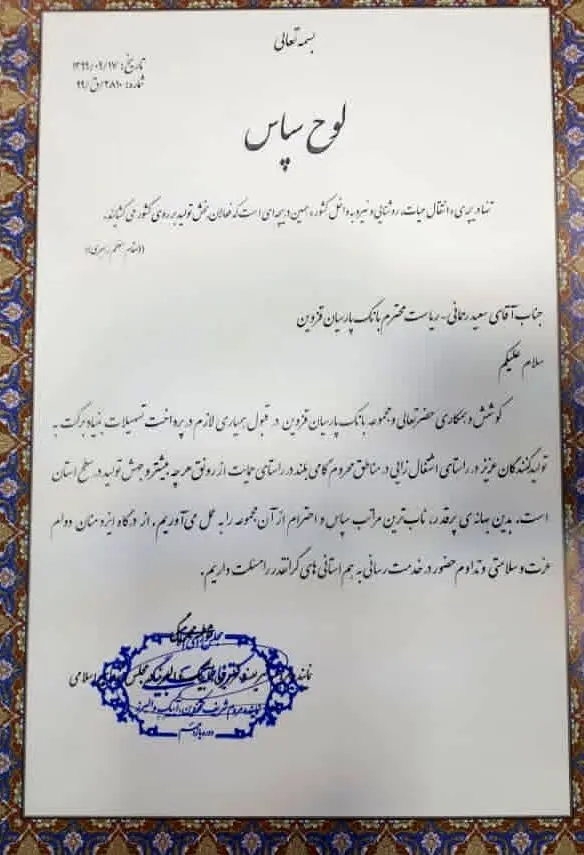 بسمه تعالی
تاریخ: ۱۳۹۹/۰۹/۱۷
شماره: ۲۸۱۰/ق/۹۹
لوح سپاس
تنها دریچه‌ی، انتقال حیات، روشنایی و نیرو به داخل کشور، همین دریچه‌ای است که فعالان بخش تولید بر روی کشور می گشایند.
((مقام معظم رهبری))
جناب آقای سعید رحمانی-ریاست محترم بانک پارسیان قزوین
سلام علیکم
کوشش و همکاری حضرتعالی و مجموعه بانک پارسیان قزوین در قبول همیاری لازم در پرداخت تسهیلات بنیاد برکت به
تولیدکنندگان عزیز در راستای اشتغال زایی در مناطق محروم گامی بلند در راستای حمایت از رونق هرچه بیشتر و جهش تولید در سطح استان
است. بدین بهانه ی پرقدر، ناب ترین مراتب سپاس و احترام از آن مجموعه را به عمل می آوریم. از درگاه ایزد منان دوام
عزت و سلامتی و تداوم حضور در خدمت رسانی به هم استانی های گرانقدر را مسئلت داریم.
مجلس شورای اسلامی
نماینده مردم شریف قزوین، آبیک و البرز
دوره یازدهم